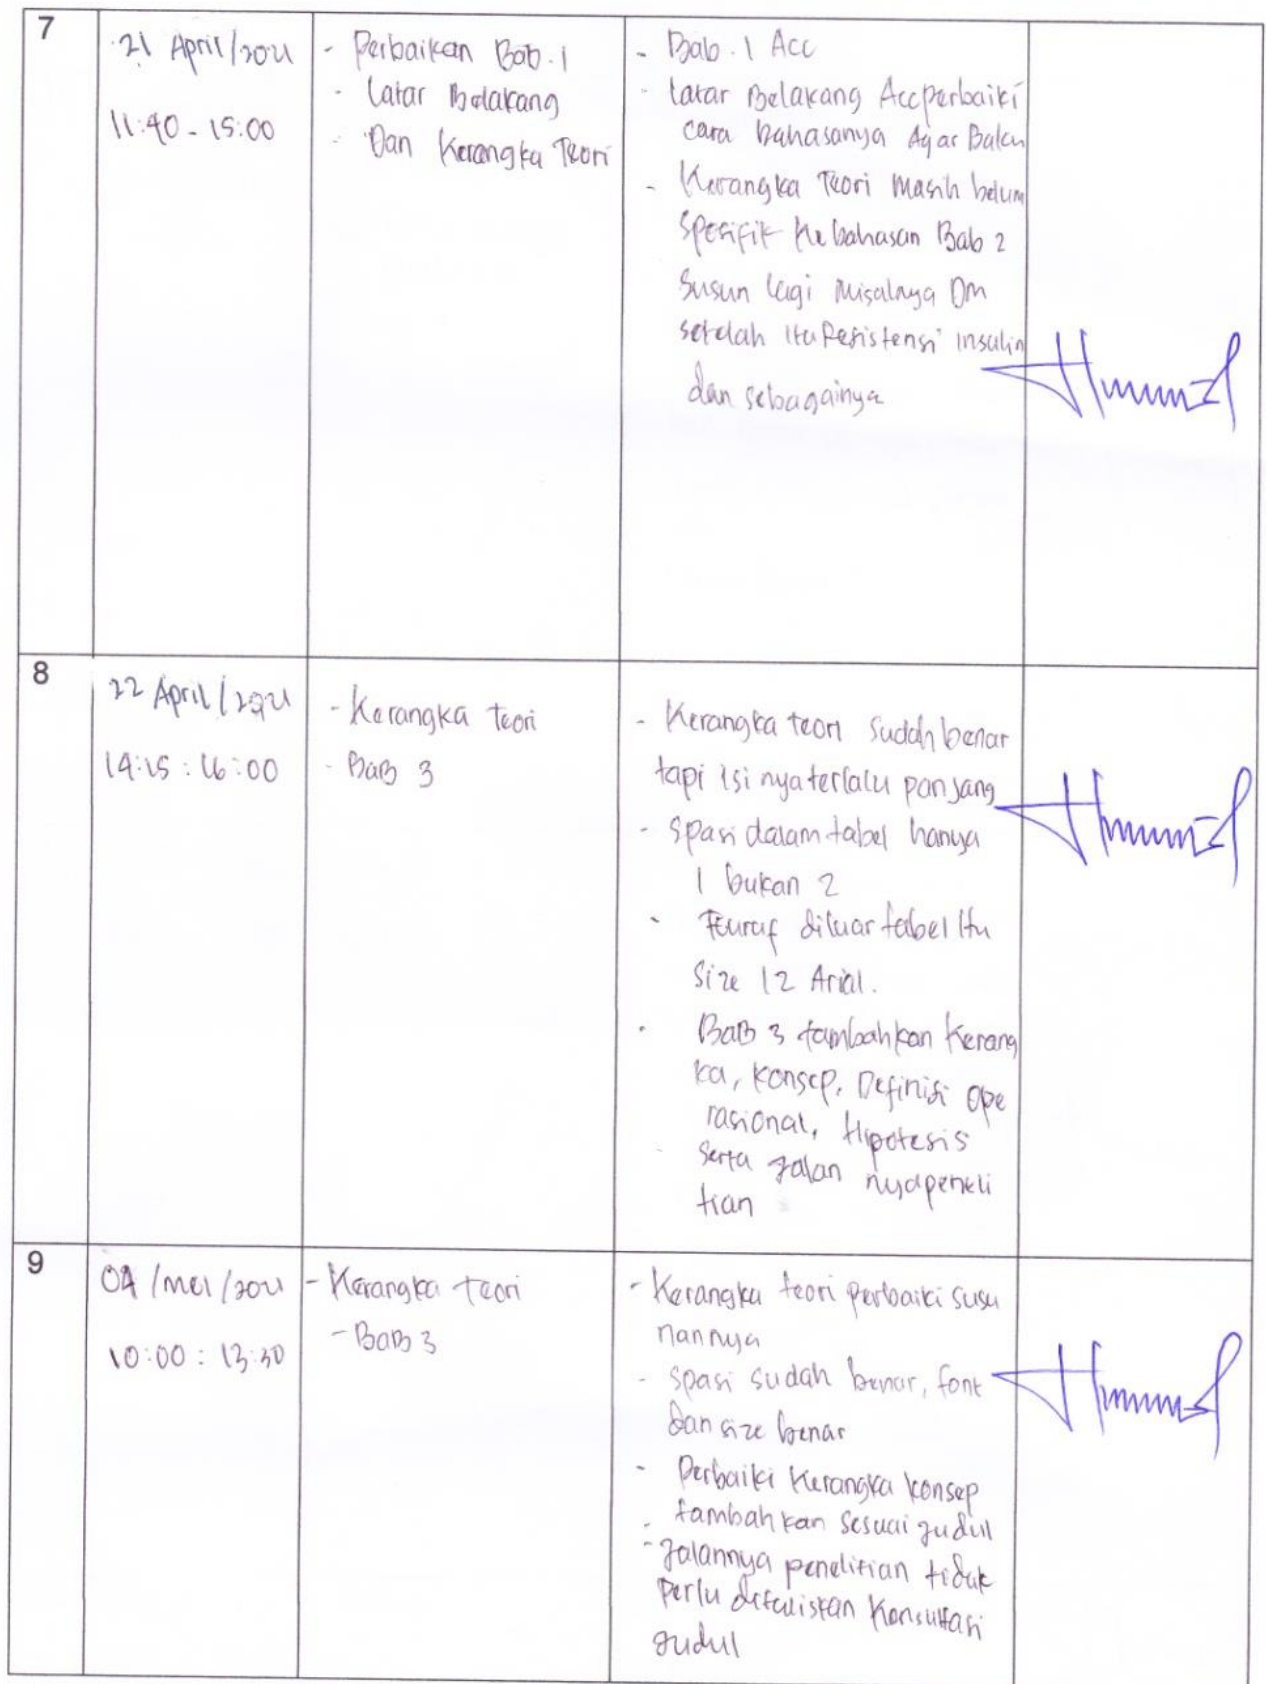 7
21 April/2021
11:40 - 15:00
- Perbaikan Bab.1
- Latar Belakang
- Dan Kerangka Teori
- Bab.1 Acc
- Latar Belakang Acc perbaiki
cara bahasanya Agar Baku
- Kerangka Teori masih belum
spesifik Ke bahasan Bab 2
Susun lagi misalnya DM
setelah itu Resistensi insulin
dan sebagainya
8
22 April/2021
14:15 : 16:00
- Kerangka teori
- BAB 3
- Kerangka teori sudah benar
tapi isi nya terlalu panjang
- Spasi dalam tabel hanya
1 bukan 2
- diluar tabel itu
Size 12 Arial.
- BAB 3 tambahkan Kerang
ka, konsep, Definisi Ope
rasional, Hipotesis
- Serta Jalan nya peneli
tian
9
04 /mei /2021
10:00 : 13:30
- Kerangka teori
- BAB 3
- Kerangka teori perbaiki susu
nannya
- Spasi sudah benar, font
dan size benar
- Perbaiki Kerangka konsep
- tambahkan sesuai judul
- Jalannya penelitian tidak
perlu dituliskan Konsultasi
judul